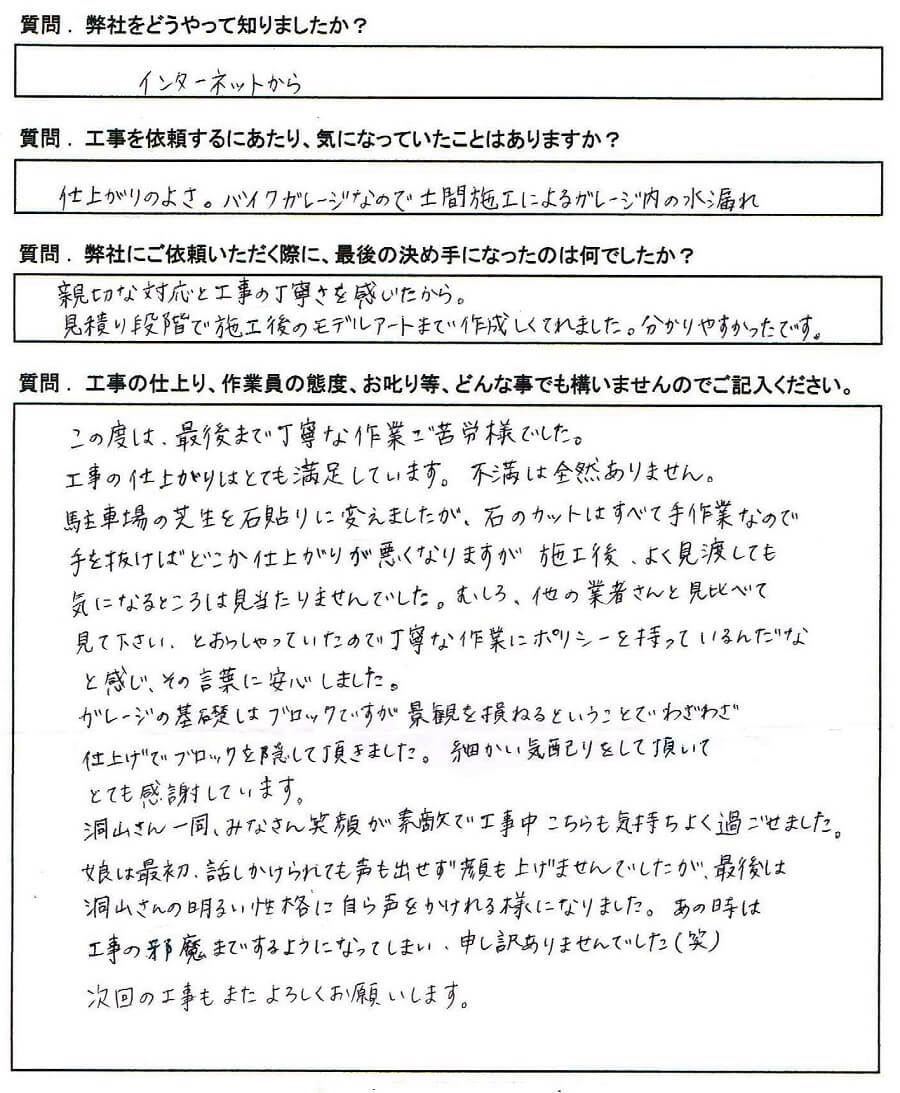 質問． 弊社をどうやって知りましたか？
インターネットから
質問． 工事を依頼するにあたり、気になっていたことはありますか？
仕上がりのよさ。バイクガレージなので土間施工によるガレージ内の水漏れ
質問． 弊社にご依頼いただく際に、最後の決め手になったのは何でしたか？
親切な対応と工事の丁寧さを感じたから。
見積り段階で施工後のモデルアートまで作成しくてれました。分かりやすかったです。
質問． 工事の仕上り、作業員の態度、お叱り等、どんな事でも構いませんのでご記入ください。
この度は、最後まで丁寧な作業ご苦労様でした。
工事の仕上がりはとても満足しています。不満は全然ありません。
駐車場の芝生を石貼りに変えましたが、石のカットはすべて手作業なので
手を抜けばどこか仕上がりが悪くなりますが 施工後、よく見渡しても
気になるところは見当たりませんでした。むしろ、他の業者さんと見比べて
見て下さい、とおっしゃっていたので丁寧な作業にポリシーを持っているんだな
と感じ、その言葉に安心しました。
ガレージの基礎はブロックですが景観を損ねるということでわざわざ
仕上げでブロックを隠して頂きました。細かい気配りをして頂いて
とても感謝しています。
洞山さん一同、みなさん笑顔が素敵で工事中こちらも気持ちよく過ごせました。
娘は最初、話しかけられても声も出せず顔も上げませんでしたが、最後は
洞山さんの明るい性格に自ら声をかけれる様になりました。あの時は
工事の邪魔までするようになってしまい、申し訳ありませんでした(笑)
次回の工事もまたよろしくお願いします。